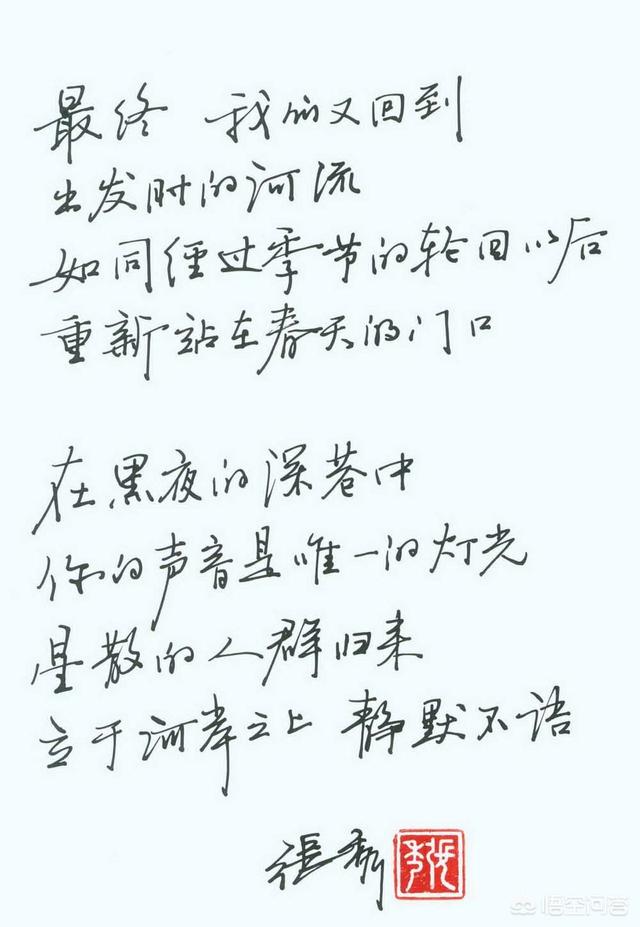 最终 我们又回到
出发时的河流
如同经过季节的轮回以后
重新站在春天的门口
在黑夜的深巷中
你的声音是唯一的灯光
星散的人群归来
立于河岸之上 静默不语
张秀
悟空问答